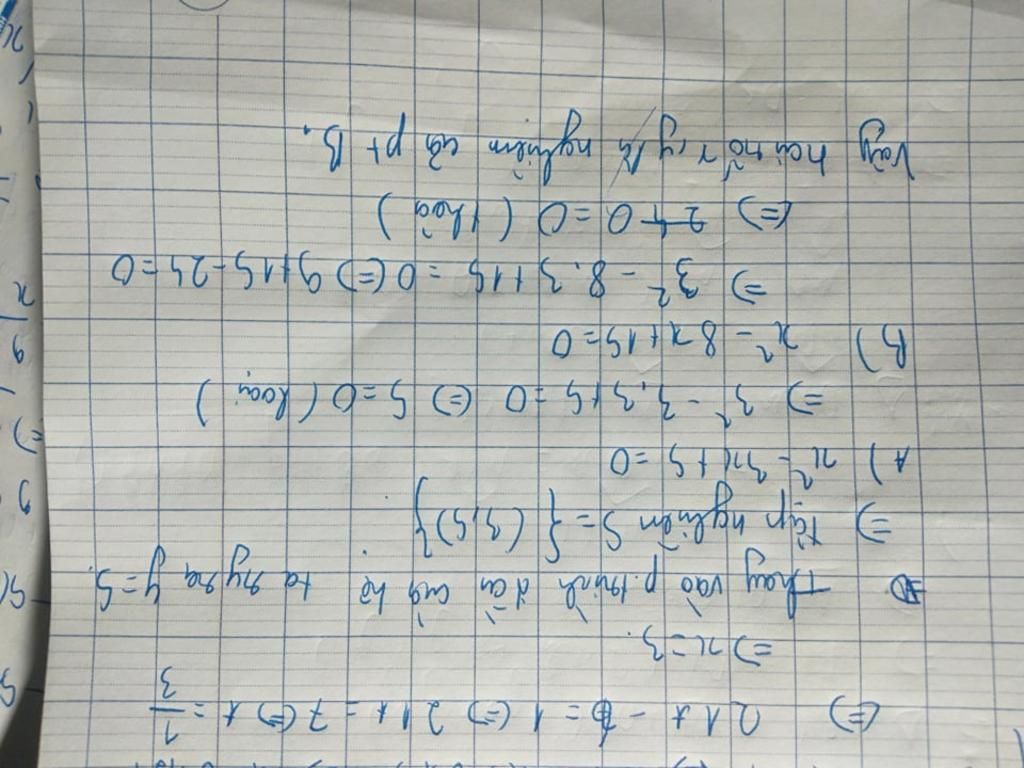 (=) 21t - 6 = 1 (=) 21t = 7 (=) t = 1/3
=) x = 3.
Thay vào p.trình đầu của hệ ta suy ra y = 5.
=) tập nghiệm S = { (3,5) }
A) x² - 3x + 5 = 0
=) 3² - 3.3 + 5 = 0 (=) 5 = 0 (loại)
B) x² - 8x + 15 = 0
=) 3² - 8.3 + 15 = 0 (=) 9 + 15 - 24 = 0
(=) 0 = 0 (thoả)
Vậy hai số x, y là nghiệm của pt B.